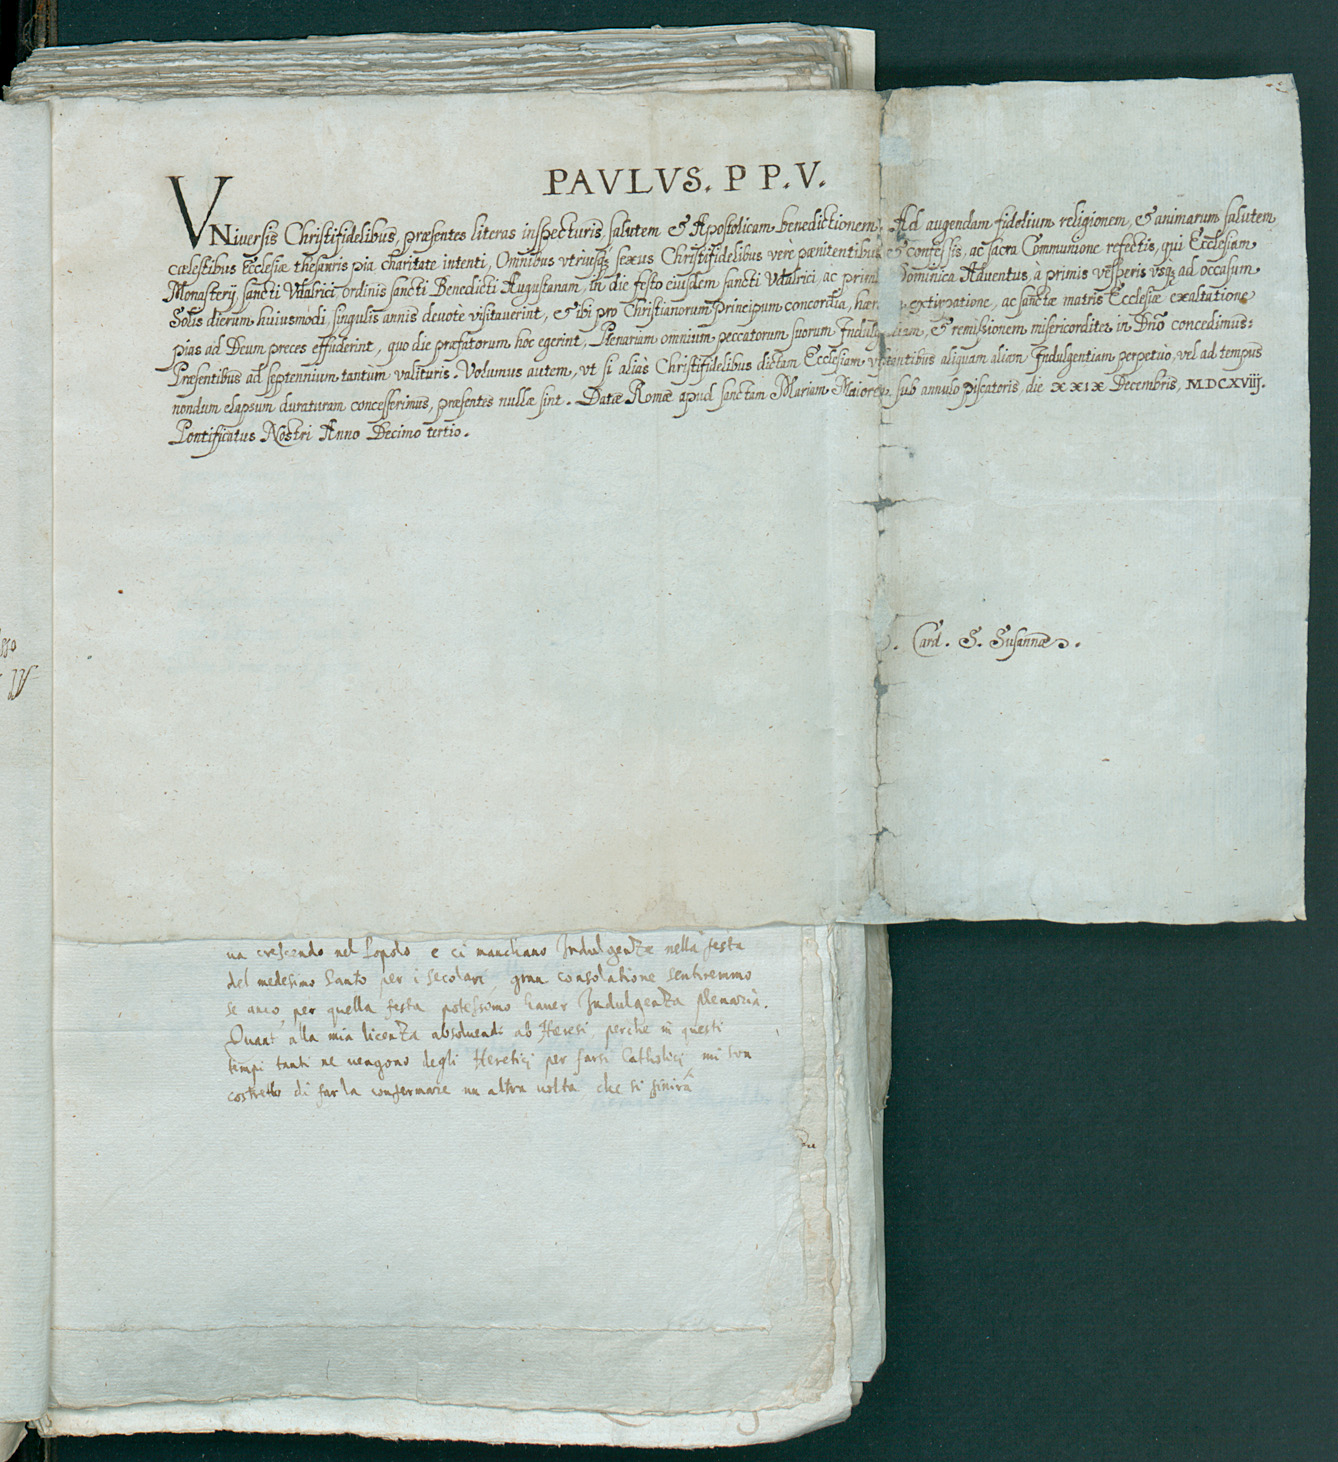 PAVLVS. P P. V.
VNiversis Christifidelibus, præsentes literas inspecturis, salutem & Apostolicam benedictionem. Ad augendam fidelium religionem, & animarum salutem
cælestibus Ecclesiæ thesauris pia charitate intenti, Omnibus vtriusq; sexus Christifidelibus verè pænitentibus & confessis, ac sacra Communione refectis, qui Ecclesiam
Monasterij sancti Vdalrici ordinis sancti Benedicti Augustanam, in die festo eiusdem sancti Vdalrici, ac prim Dominica Aduentus, à primis vesperis vsq; ad occasum
Solis dierum huiusmodi, singulis annis deuotè visitauerint, & ibi pro Christianorum Principum concordia, hær extirpatione, ac sanctæ matris Ecclesiæ exaltatione
pias ad Deum preces effuderint, quo die præfatorum hoc egerint, Plenariam omnium peccatorum suorum Indulgentiam, & remissionem misericorditer in Dño concedimus:
Præsentibus ad septennium tantùm valituris. Volumus autem, vt si aliàs Christifidelibus dictam Ecclesiam visitantibus aliquam aliam Indulgentiam perpetuò, vel ad tempus
nondum elapsum duraturam concesserimus, præsentes nullæ sint. Datæ Romæ apud sanctam Mariam Maiorem sub annulo piscatoris, die XXIX Decembris, M.DCXVIIJ.
Pontificatus Nostri Anno Decimo tertio.
Card. S. Susannæ.
ua crescendo nel Popolo e ci manchano Indulgenze nella festa
del medesimo Santo per i secolari, gran consolatione sentiremmo
se anco per quella festa potessimo hauer Indulgenza plenaria.
Quant' alla mia licenza absoluendi ab Heresi, perche in questi
tempi tanti ne uengono degli Heretici per farsi Catholici mi son
costretto di farla confermare un altra uolta che si finirà